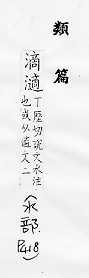 類篇
滴 㵁 丁歷切說文水注
也或从啻文二
(水部.
P418)